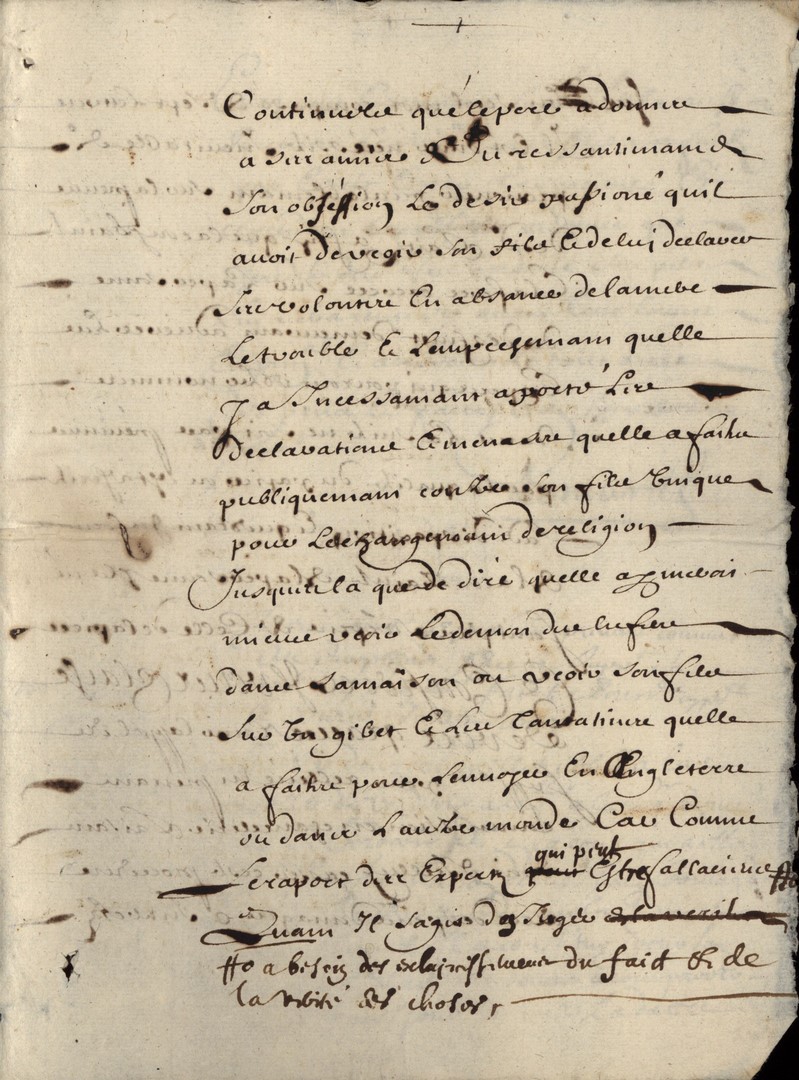 Continuels que le pere a donnés
a ses amis & du ressantimant de
son obséssion le desir passioné quil
auoit de veoir son fils Et de luj declarer
ses volontés En absance de la mere
Le trouble Et Lempechemant quelle
ja Incessamant aporté Les
declarations Et menasses quelle a faites
publiquemant contre son fils Vnique
pour Le changemant de religion
Jusques la que de dire quelle aymerois
mieux veoir Le demon
dans La maison ou veoir son fils
sur Vn gibet Et Les Tantatiues quelle
a faites pour Lenuoyer En Engleterre
ou dans Lautre monde Car Comme
Le raport des Expertz qui peut Estre fallacieuse #o
Quant Il sagis de Juger
#o a besoin des esclaircissements du faict & de
la verité des choses,